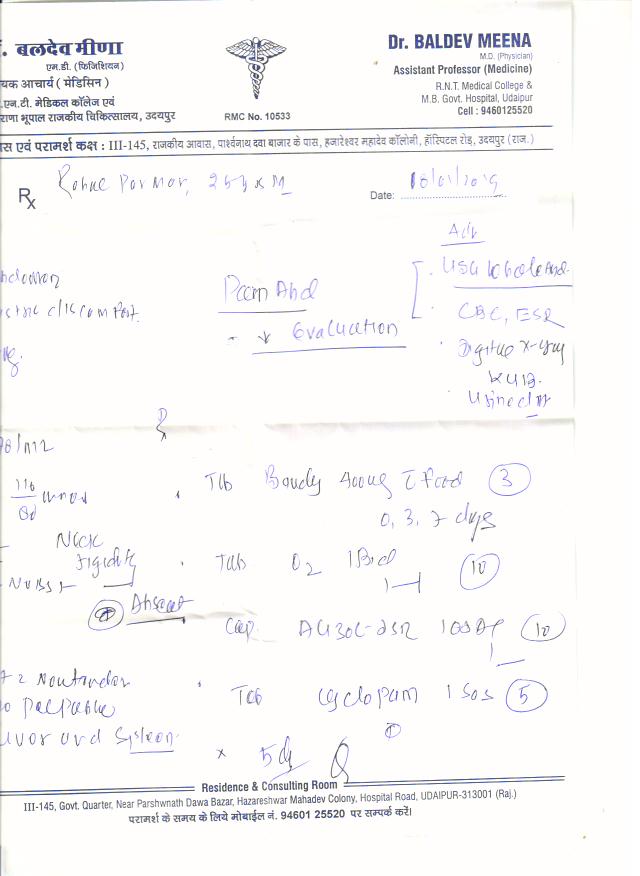 . बलदेव मीणा
एम.डी. (फिजिशियन)
यक आचार्य ( मेडिसिन )
.एन.टी. मेडिकल कॉलेज एवं
राणा भूपाल राजकीय चिकित्सालय, उदयपुर
RMC No. 10533
Dr. BALDEV MEENA
M.D. (Physician)
Assistant Professor (Medicine)
R.N.T. Medical College &
M.B. Govt. Hospital, Udaipur
Cell : 9460125520
ास एवं परामर्श कक्ष : III-145, राजकीय आवास, पार्श्वनाथ दवा बाजार के पास, हजारेश्वर महादेव कॉलोनी, हॉस्पिटल रोड, उदयपुर (राज.)
Rx
Parmar, 25y x M
Date: 18/01/2019
Adv
USG whole Abd.
Pain Abd
discomfort
CBC, ESR
Evaluation
Digital X-ray
KUB.
Urine
110
80
Tab Bandy 400mg c food 3
0, 3, 7 days
Neck
rigidity
Tab O2 1 BD 10
Absent
Cap. 1 OD 10
Tab Cyclopam 1 SOS 5
Palpable
and Spleen
x 5 d
Residence & Consulting Room
III-145, Govt. Quarter, Near Parshwnath Dawa Bazar, Hazareshwar Mahadev Colony, Hospital Road, UDAIPUR-313001 (Raj.)
परामर्श के समय के लिये मोबाईल नं. 94601 25520 पर सम्पर्क करें।